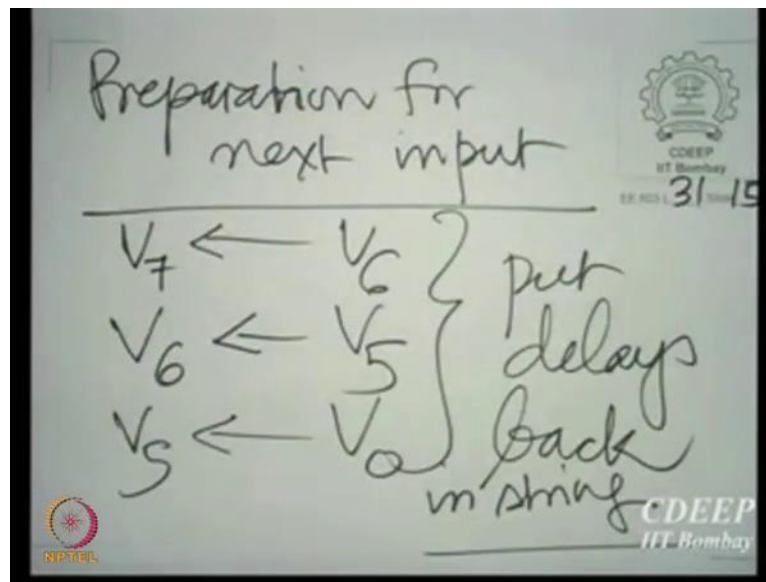 Preparation for
next input
CDEEP
IIT Bombay
31 15
V7 ← V6
put
V6 ← V5
delays
V5 ← V0
back
in string
NPTEL
CDEEP
IIT Bombay